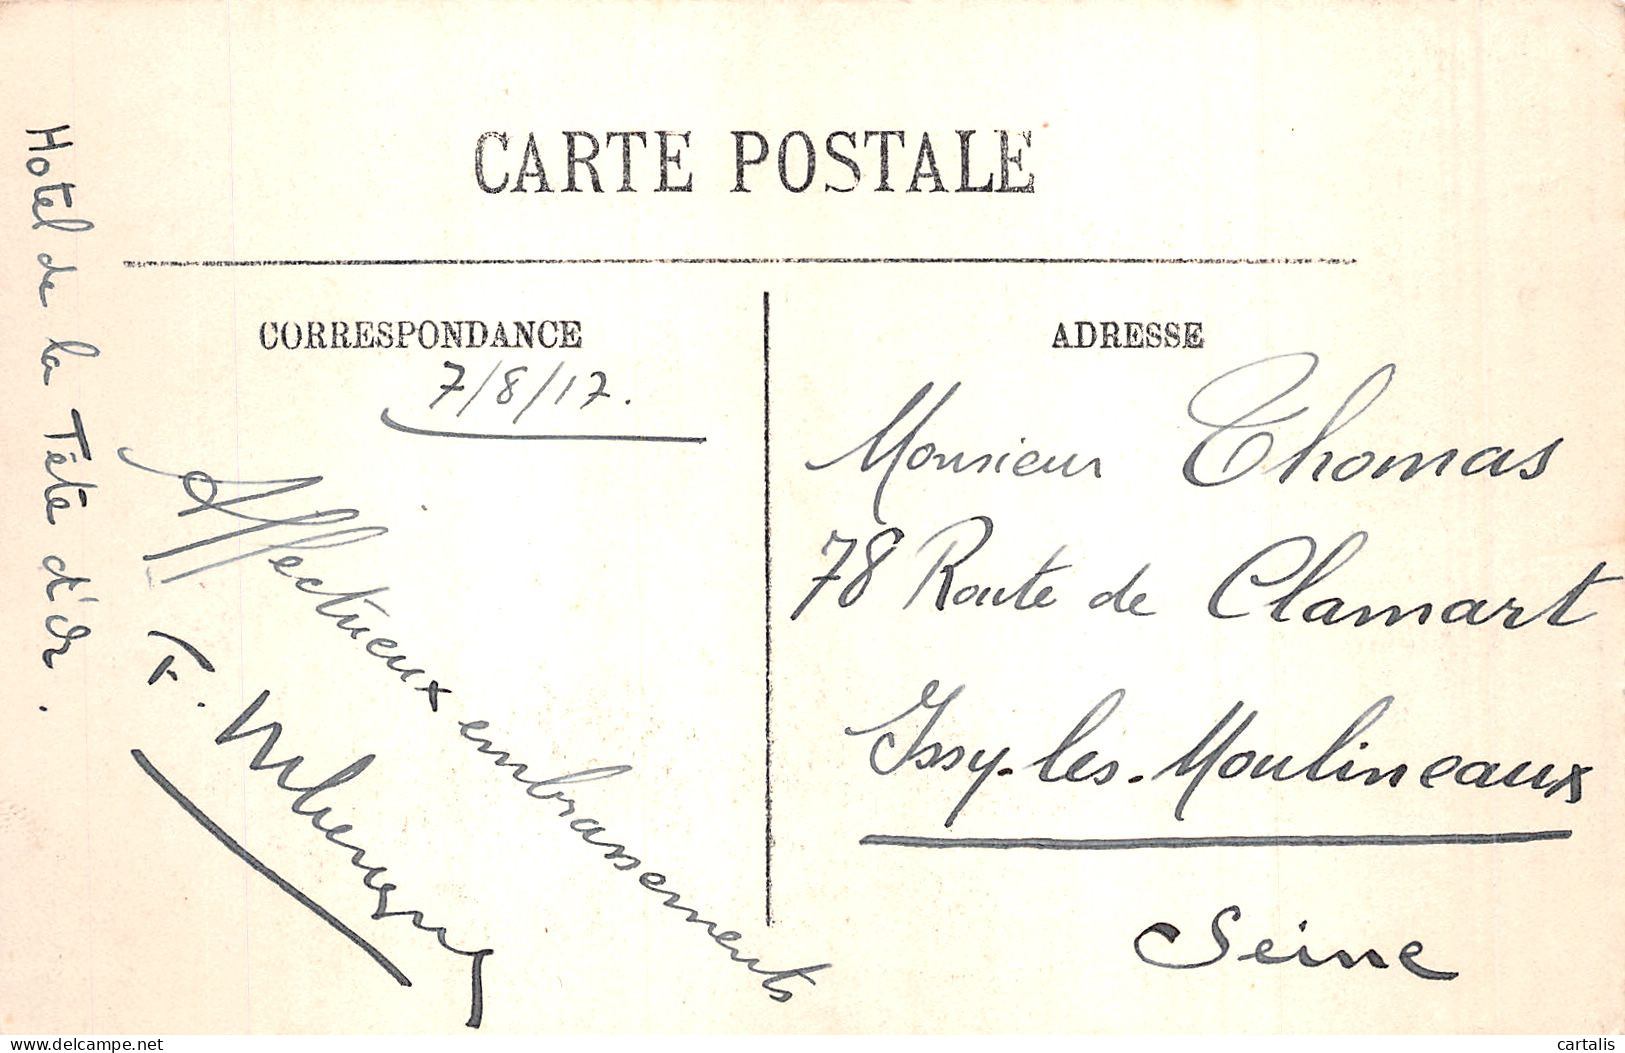 CARTE POSTALE
CORRESPONDANCE
7/8/17.
Affectueux embrassements
F.
Hotel de la Tête d'Or.
ADRESSE
Monsieur Thomas
78 Route de Clamart
Issy-les-Moulineaux
Seine
www.delcampe.net
cartalis